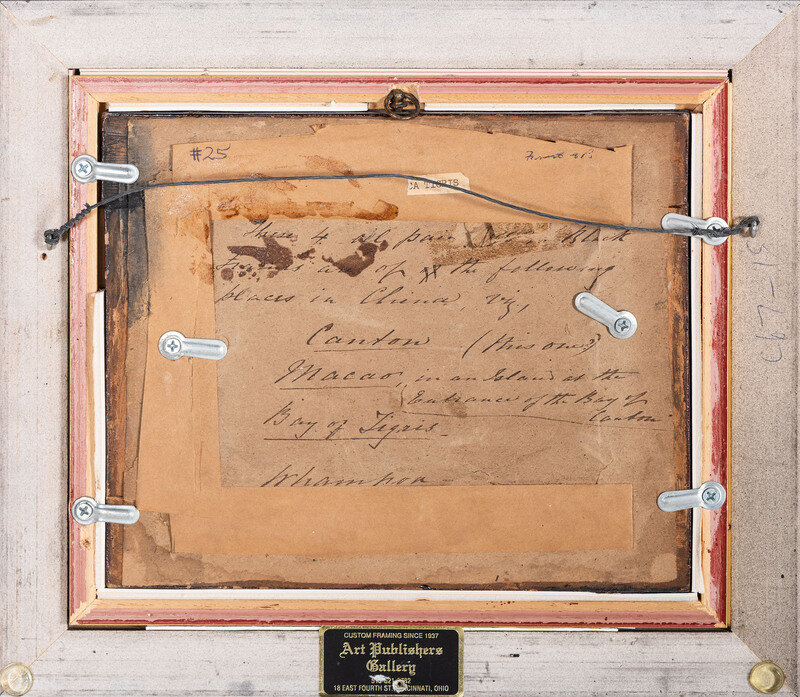 #25
CA TIGRIS
These 4 oil black
are of the following
places in China, viz,
Canton (this one)
Macao, in an Island at the
Entrance of the Bay of
Canton
Bay of Tigris
Whampoa
CUSTOM FRAMING SINCE 1937
Art Publishers
Gallery
18 EAST FOURTH ST. CINCINNATI, OHIO